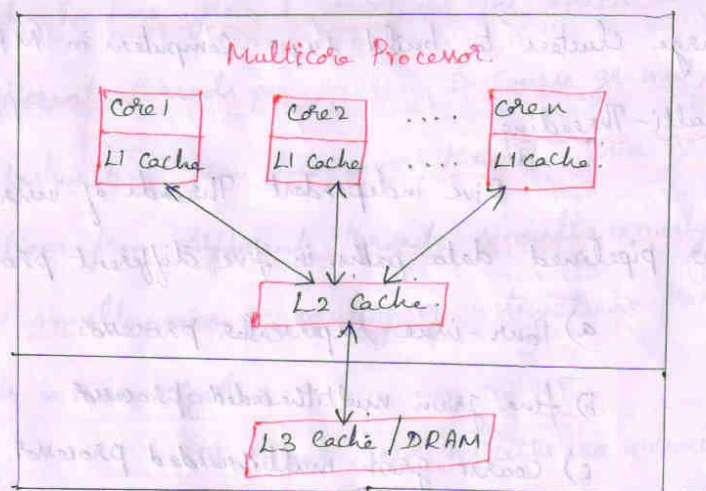 Multicore Processor.
Core 1 Core 2 .... Core n
L1 Cache L1 Cache .... L1 cache.
L2 Cache.
L3 Cache / DRAM